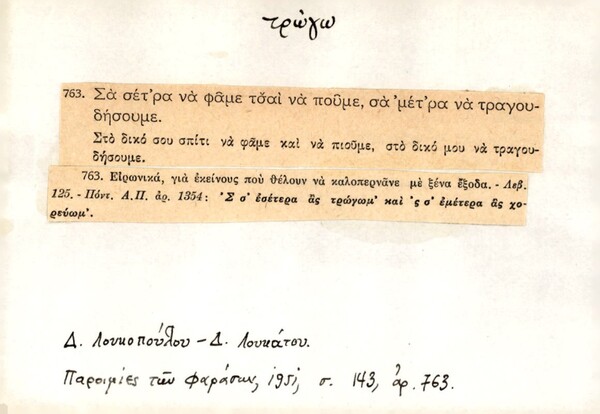 τρώγω
763. Σὰ σέτ'ρα νὰ φᾶμε τσ̌αὶ νὰ ποῦμε, σὰ 'μέτ'ρα νὰ τραγου-
δήσουμε.
Στὸ δικό σου σπίτι νὰ φᾶμε καὶ νὰ πιοῦμε, στὸ δικό μου νὰ τραγου-
δήσουμε.
763. Εἰρωνικά, γιὰ ἐκείνους ποὺ θέλουν νὰ καλοπερνᾶνε μὲ ξένα ἔξοδα. - Λεβ.
125. - Πόντ. Α.Π. ἀρ. 1354: 'Σ σ' ἐσέτερα ἂς τρώγωμ' καὶ 'ς σ' ἐμέτερα ἂς χο-
ρεύωμ'.
Δ. Λουκοπούλου - Δ. Λουκάτου.
Παροιμίες τῶν Φαράσων, 1951, σ. 143, ἀρ. 763.